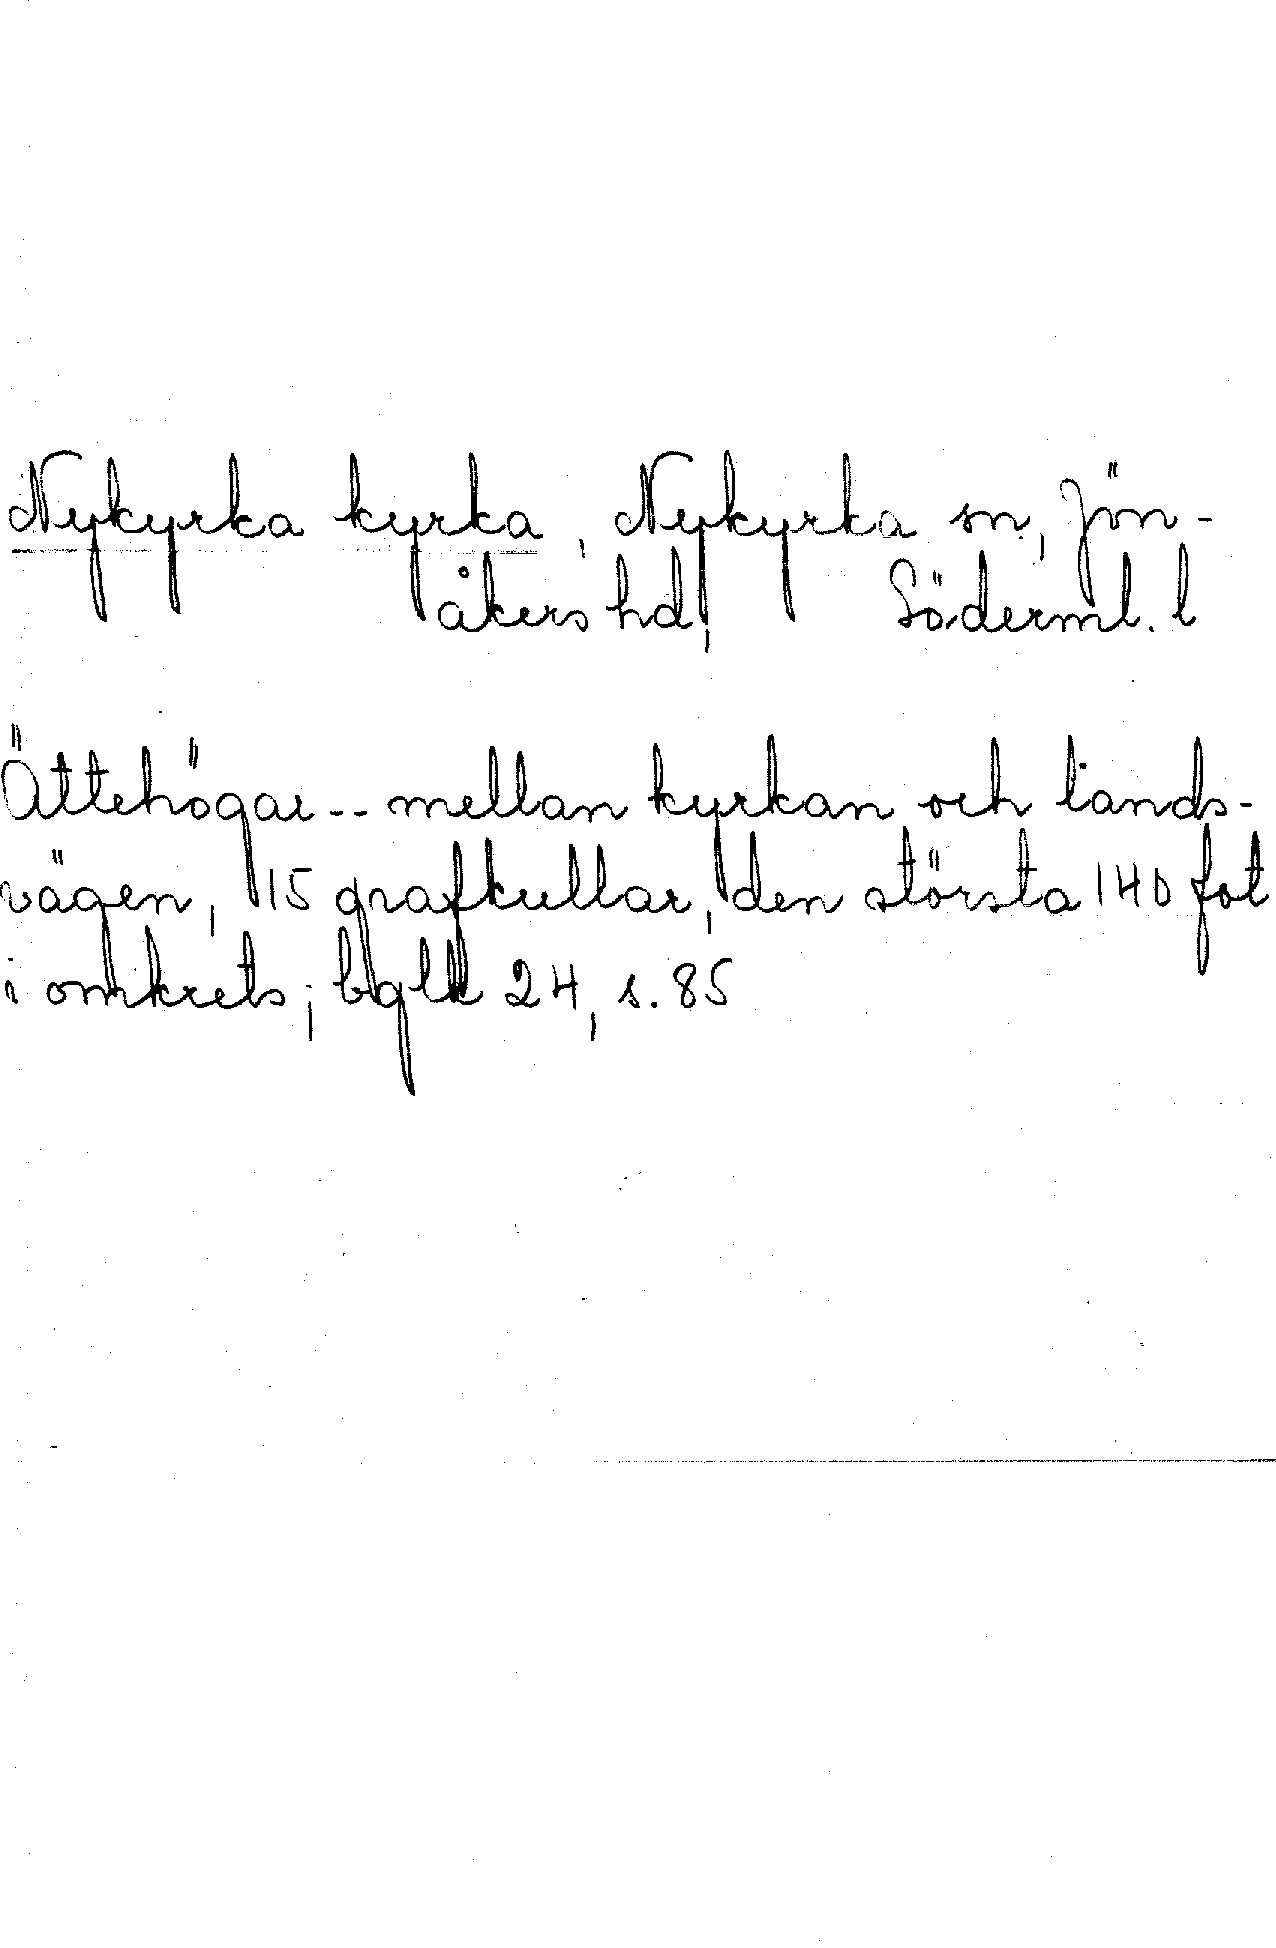 Nykyrka kyrka, Nykyrka sn, Jön-
åkers hd, Söderml. l
Ättehögar -- mellan kyrkan och lands-
vägen, 15 grafkullar, den största 140 fot
i omkrets; bglk 24, s. 85